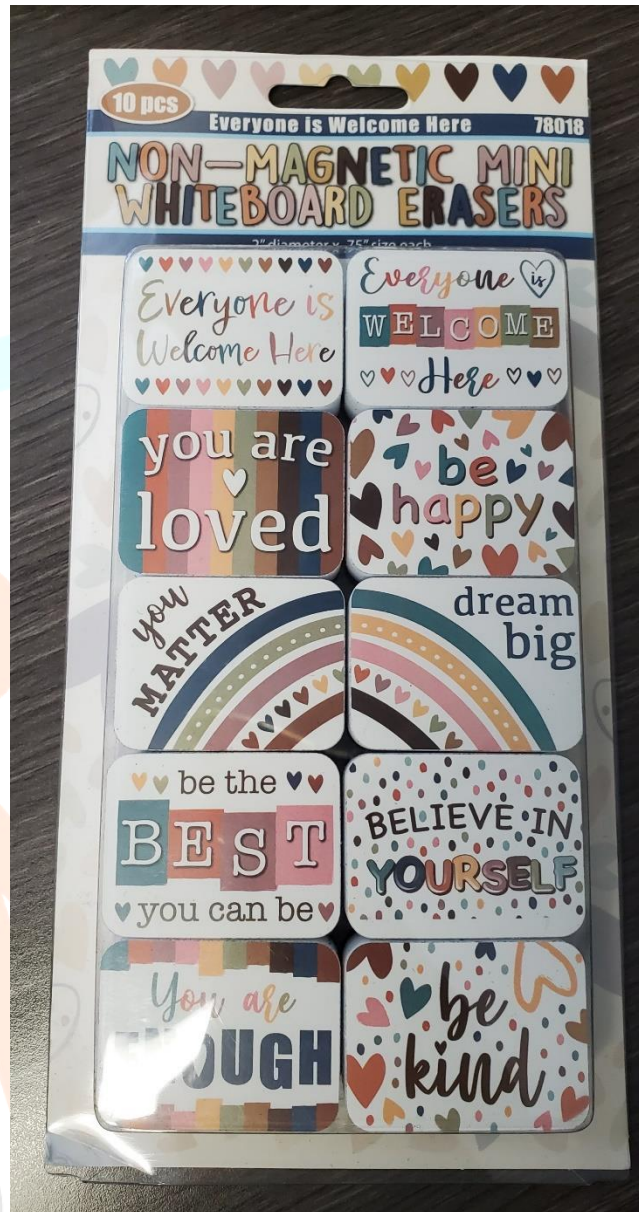 10 pcs
Everyone is Welcome Here 78018
NON-MAGNETIC MINI
WHITEBOARD ERASERS
2" diameter x .75" size each
Everyone is
Welcome Here
Everyone is
WELCOME
Here
you are
loved
be
happy
you
MATTER
dream
big
be the
BEST
you can be
BELIEVE IN
YOURSELF
You are
ENOUGH
be
kind